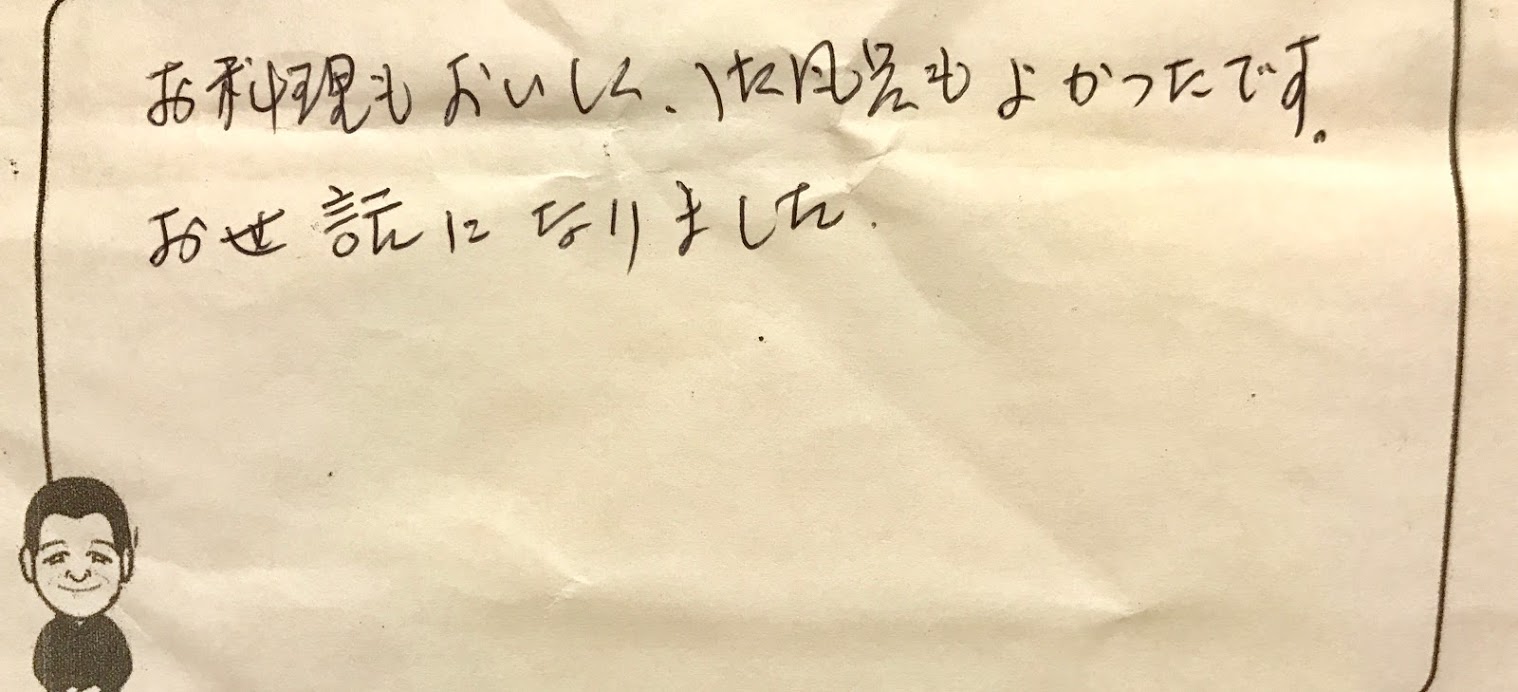 お料理もおいしく、お風呂もよかったです。
お世話になりました.